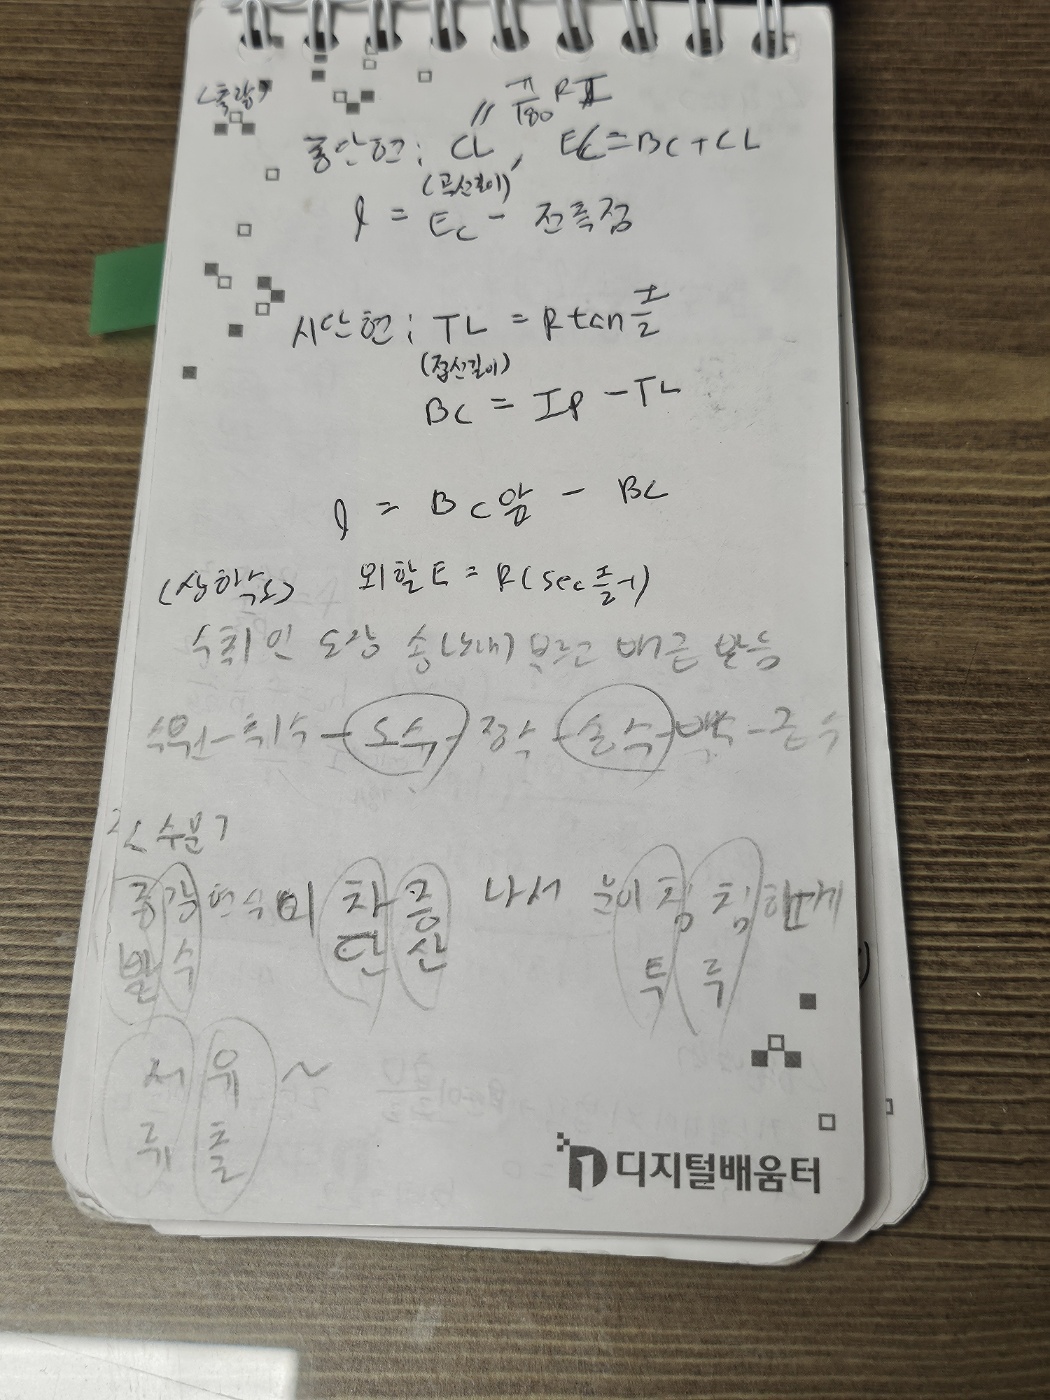 <측량>
" π/180 R I
종단현: CL, EC=BC+CL
(곡선길이)
l = EC - 전측점
시단현: TL = R tan I/2
(접선길이)
BC = IP - TL
l = BC앞 - BC
<상하수도> 외할 E = R(sec I/2 -1)
수취인 도장 송(노래) 부르고 배급 받음
수원-취수-도수-정수-송수-배수-급수
<수문>
강 연수 이 차 증 나서 눈이 침 침하게
수 단 산 투 루
저 유 ~
류 출
디지털배움터